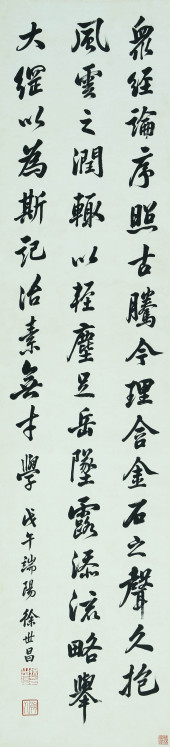 眾經論序照古騰今理含金石之聲久抱
風雲之潤輒以輕塵足岳墜露添流略舉
大綱以為斯記治素無才學 戊午端陽 徐世昌